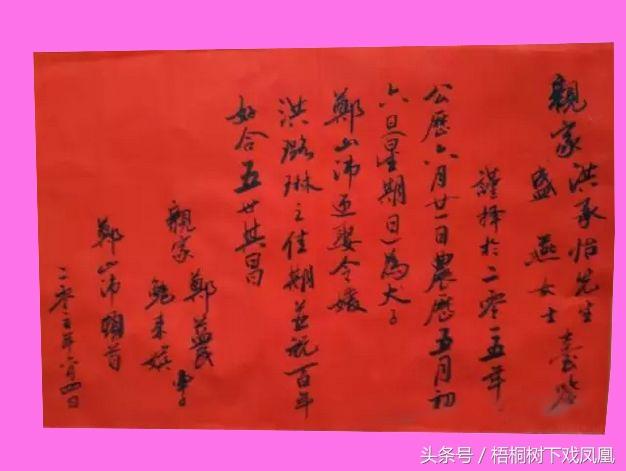 親家洪承怡先生
盛燕女士臺鋻
謹擇於二零一五年
公歷六月廿一日農歷五月初
六日(星期日)為大子
鄭山沛迎娶令嬡
洪璐琳之佳期並祝百年
好合五世其昌
親家鄭益民
鮑來嬪
鄭山沛頓首
二零一五年六月四日
头条号／梧桐树下戏凤凰